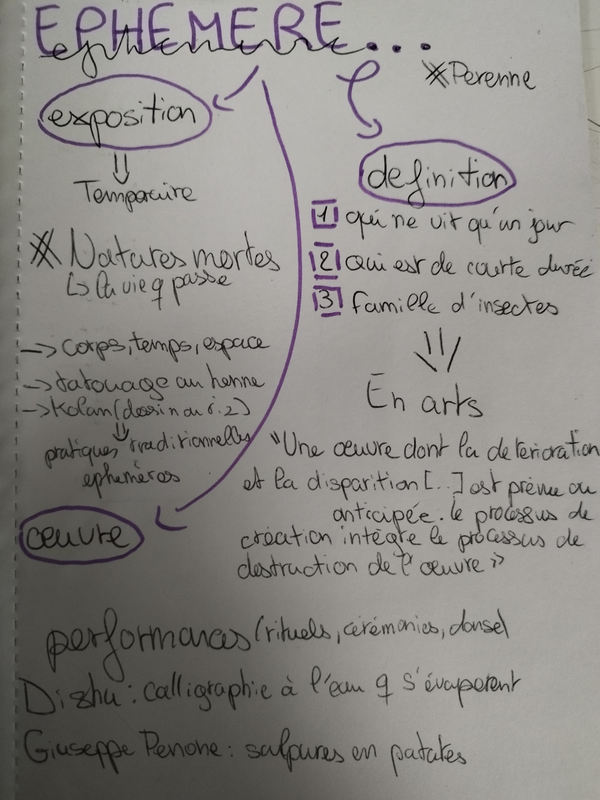 EPHEMERE...
ephemere
※ Perenne
exposition
⇓
Temporaire
※ Natures mortes
↳ la vie q passe
-> corps, temps, espace
-> tatouage au henne
-> Kolan (dessin au
⇓
pratiques traditionnelles
ephemeres
œuvre
definition
1 qui ne vit qu'un jour
2 qui est de courte durée
3 famille d'insectes
En arts
"Une œuvre dont la deterioration
et la disparition [...] est prévue ou
anticipée. le processus de
création intègre le processus de
destruction de l'œuvre »
performances (rituels, cérémonies, danse)
Dizhu : calligraphie à l'eau q s'évaporent
Giuseppe Penone : sulpures en patates